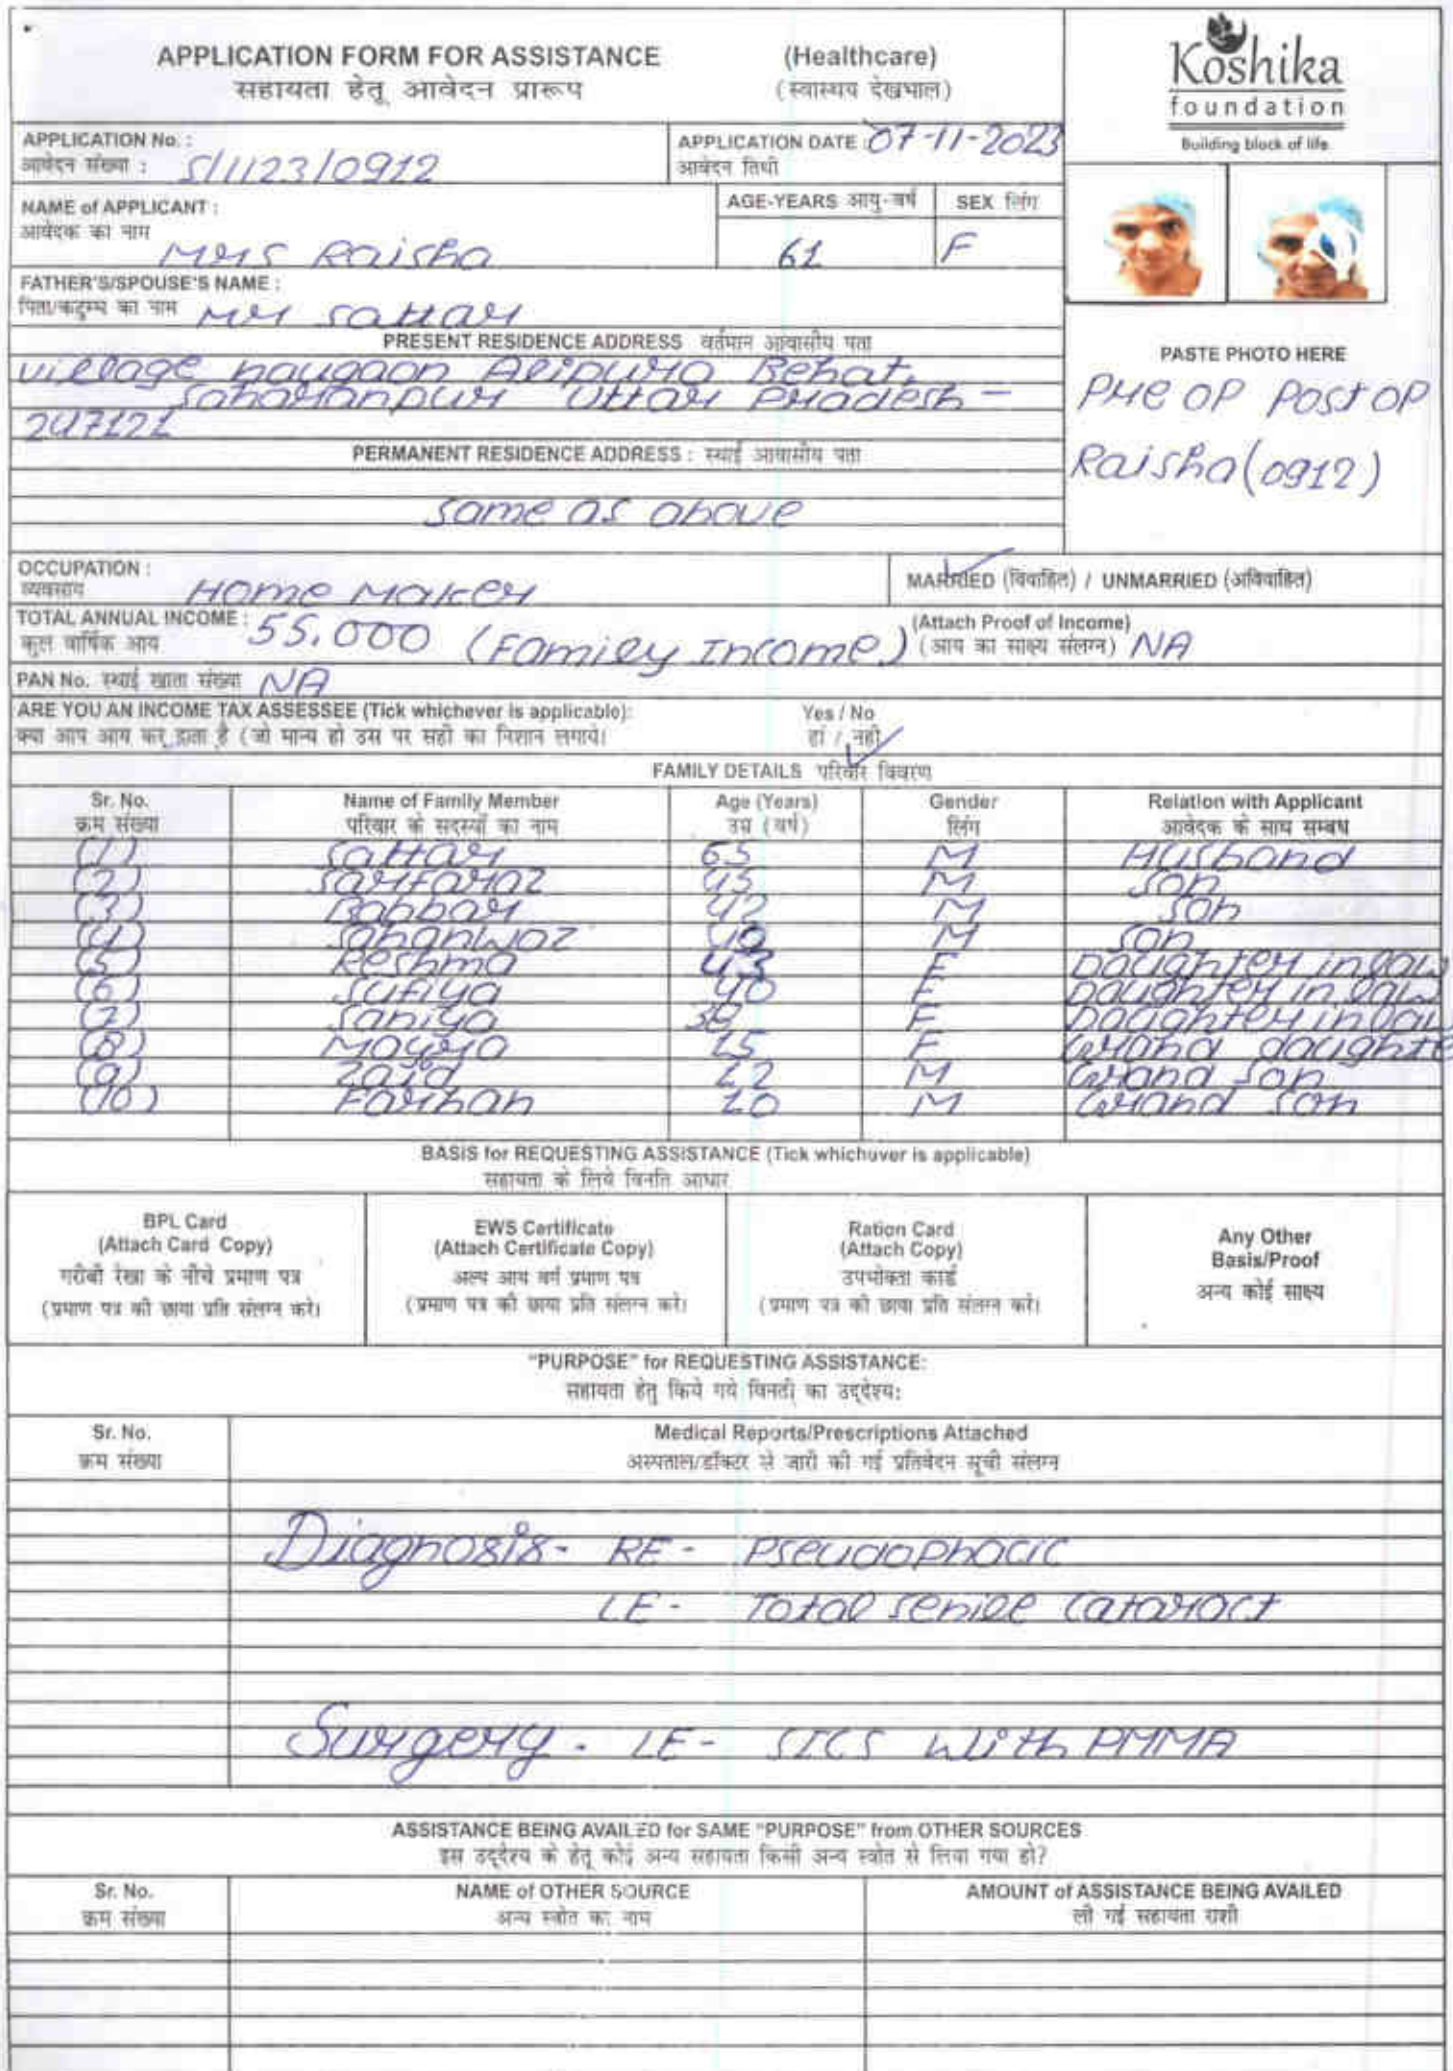 APPLICATION FORM FOR ASSISTANCE (Healthcare)
सहायता हेतू आवेदन प्रारूप (स्वास्थय देखभाल)
Koshika
foundation
Building block of life.
APPLICATION No. : S/1123/0912
आवेदन संख्या :
APPLICATION DATE : 07-11-2023
आवेदन तिथी
NAME of APPLICANT : AGE-YEARS आयु-वर्ष SEX लिंग
आवेदक का नाम Mrs Raisha 61 F
FATHER'S/SPOUSE'S NAME :
पिता/कटुम्ब का नाम Mr Sattar
PRESENT RESIDENCE ADDRESS वर्तमान आवासीय पता
Village naugaon Alipura Behat,
Saharanpur Uttar Pradesh -
247121
PERMANENT RESIDENCE ADDRESS : स्थाई आवासीय पता
same as above
PASTE PHOTO HERE
Pre OP Post OP
Raisha (0912)
OCCUPATION :
व्यवसाय Home Maker
MARRIED (विवाहित) / UNMARRIED (अविवाहित)
TOTAL ANNUAL INCOME : 55,000 (Family Income)
कुल वार्षिक आय
(Attach Proof of Income)
(आय का साक्ष्य संलग्न) NA
PAN No. स्थाई खाता संख्या NA
ARE YOU AN INCOME TAX ASSESSEE (Tick whichever is applicable): Yes / No
क्या आप आय कर दाता है (जो मान्य हो उस पर सही का निशान लगाये। हां / नहीं
FAMILY DETAILS परिवार विवरण
Sr. No. Name of Family Member Age (Years) Gender Relation with Applicant
क्रम संख्या परिवार के सदस्यों का नाम उम्र (वर्ष) लिंग आवेदक के साथ सम्बध
(1) Sattar 65 M Husband
(2) Sarfaraz 45 M Son
(3) Babbar 42 M Son
(4) Sahanwaz 40 M Son
(5) Reshma 43 F Daughter in law
(6) Sufiya 40 F Daughter in law
(7) Saniya 38 F Daughter in law
(8) 15 F Grand daughte
(9) Zaid 12 M Grand Son
(10) Farhan 10 M Grand Son
BASIS for REQUESTING ASSISTANCE (Tick whichuver is applicable)
सहायता के लिये विनति आधार
BPL Card
(Attach Card Copy)
गरीबी रेखा के नीचे प्रमाण पत्र
(प्रमाण पत्र की छाया प्रति संलग्न करे।
EWS Certificate
(Attach Certificate Copy)
अल्प आय वर्ग प्रमाण पत्र
(प्रमाण पत्र की छाया प्रति संलग्न करे।
Ration Card
(Attach Copy)
उपभोक्ता कार्ड
(प्रमाण पत्र की छाया प्रति संलग्न करे।
Any Other
Basis/Proof
अन्य कोई साक्ष्य
"PURPOSE" for REQUESTING ASSISTANCE:
सहायता हेतु किये गये विनती का उद्देश्य:
Sr. No. Medical Reports/Prescriptions Attached
क्रम संख्या अस्पताल/डॉक्टर से जारी की गई प्रतिवेदन सूची संलग्न
Diagnosis- RE - Pseudophacic
LE - Total senile cataract
Surgery - LE - SICS With PMMA
ASSISTANCE BEING AVAILED for SAME "PURPOSE" from OTHER SOURCES
इस उद्देश्य के हेतू कोई अन्य सहायता किसी अन्य स्त्रोत से लिया गया हो?
Sr. No. NAME of OTHER SOURCE AMOUNT of ASSISTANCE BEING AVAILED
क्रम संख्या अन्य स्त्रोत का नाम ली गई सहायता राशी